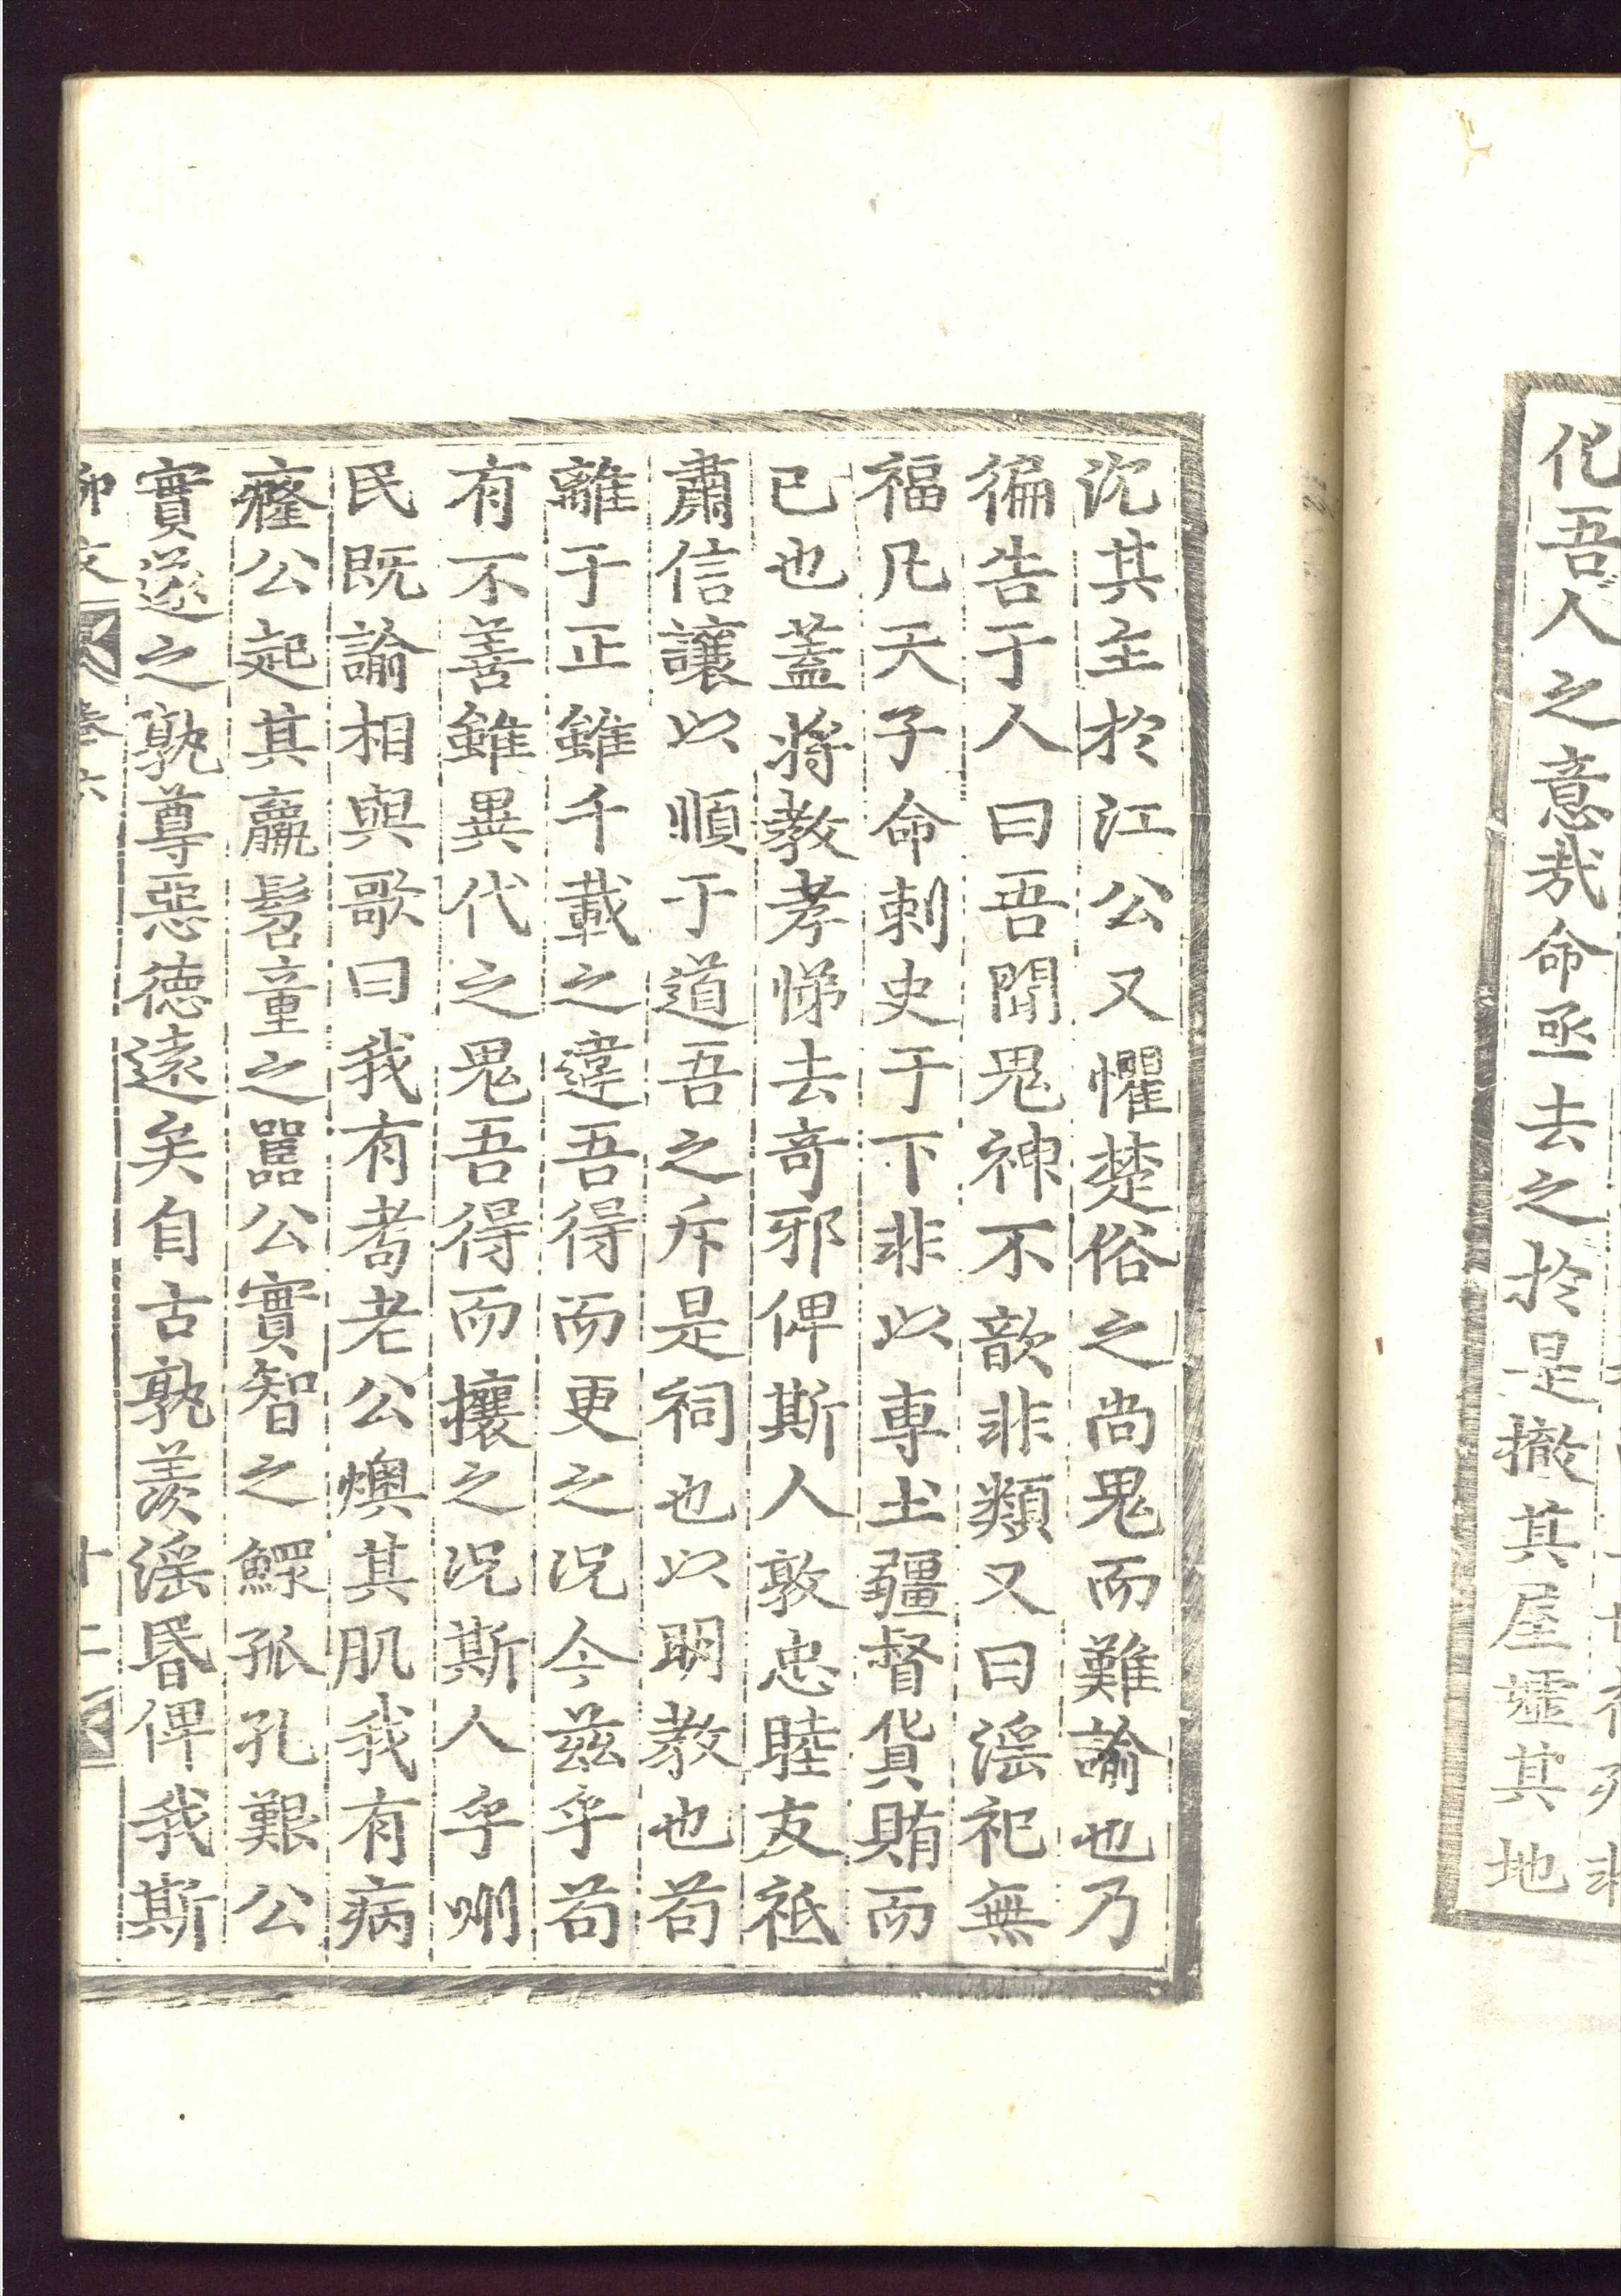 化吾人之意哉命亟去之於是撤其屋墟其地
沉其主於江公又懼楚俗之尚鬼而難諭也乃
徧告于人曰吾聞鬼神不歆非類又曰淫祀無
福凡天子命刺史于下非以專土疆督貨賄而
已也蓋將教孝悌去奇邪俾斯人敦忠睦友祗
肅信讓以順于道吾之斥是祠也以明教也苟
離于正雖千載之違吾得而更之况今茲乎苟
有不善雖異代之鬼吾得而攘之况斯人乎州
民既諭相與歌曰我有耇老公燠其肌我有病
癃公起其羸髫童之嚚公實智之鰥孤孔艱公
實遂之孰尊惡德遠矣自古孰羡淫昏俾我斯
柳文 卷六 十二